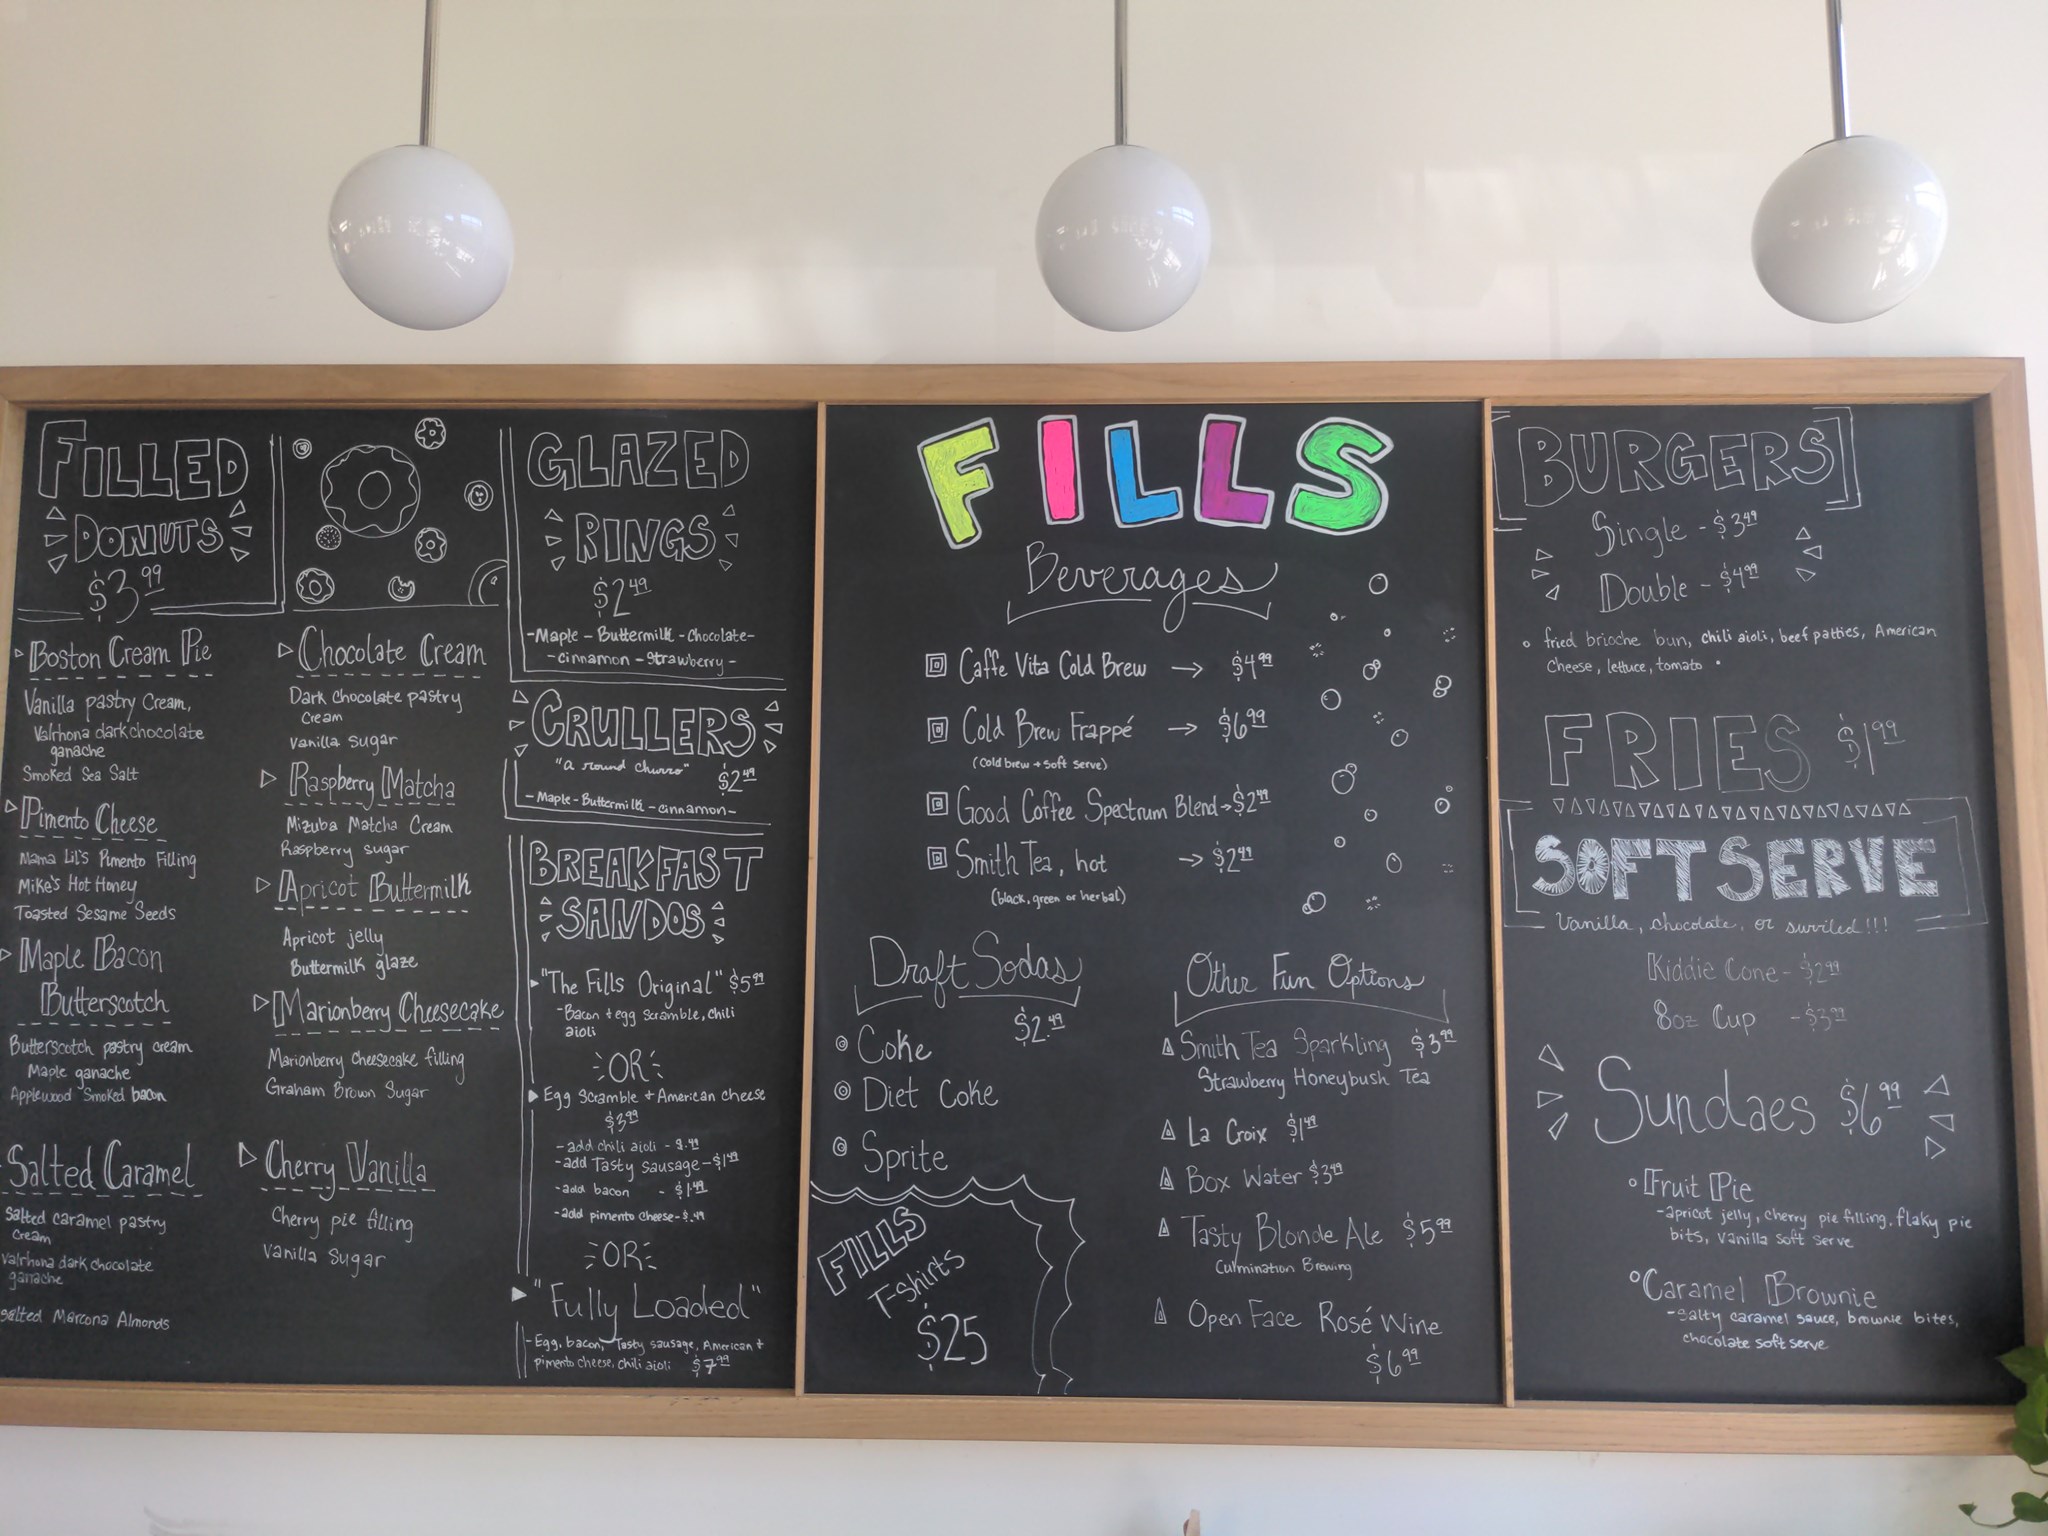 FILLED
DONUTS
$3.99
Boston Cream Pie
Vanilla pastry Cream,
Valrhona dark chocolate
ganache
Smoked Sea Salt
Pimento Cheese
Mama Lil's Pimento Filling
Mike's Hot Honey
Toasted Sesame Seeds
Maple Bacon
Butterscotch
Butterscotch pastry cream
Maple ganache
Applewood Smoked bacon
Salted Caramel
Salted caramel pastry
cream
Valrhona dark chocolate
ganache
Salted Marcona Almonds
Chocolate Cream
Dark chocolate pastry
Cream
Vanilla sugar
Raspberry Matcha
Mizuba Matcha Cream
Raspberry sugar
Apricot Buttermilk
Apricot jelly
Buttermilk glaze
Marionberry Cheesecake
Marionberry cheesecake filling
Graham Brown Sugar
Cherry Vanilla
Cherry pie filling
Vanilla sugar
GLAZED
RINGS
$2.49
-Maple - Buttermilk - Chocolate-
-cinnamon - Strawberry-
CRULLERS
"a round churro"
$2.49
-Maple-Buttermilk-cinnamon-
BREAKFAST
SANDOS
"The Fills Original" $5.99
-Bacon + egg scramble, chili
aioli
OR
Egg Scramble + American cheese
$3.99
-add chili aioli - $.49
-add Tasty sausage - $1.49
-add bacon - $1.49
-add pimento cheese - $.49
OR
"Fully Loaded"
-Egg, bacon, Tasty sausage, American +
pimento cheese, chili aioli $7.99
FILLS
Beverages
Caffe Vita Cold Brew → $4.99
Cold Brew Frappé → $6.99
(cold brew + soft serve)
Good Coffee Spectrum Blend → $2.49
Smith Tea, hot → $2.49
(black, green or herbal)
Draft Sodas
$2.49
Coke
Diet Coke
Sprite
FILLS
T-shirts
$25
Other Fun Options
Smith Tea Sparkling $3.99
Strawberry Honeybush Tea
La Croix $1.49
Box Water $3.49
Tasty Blonde Ale $5.99
Culmination Brewing
Open Face Rosé Wine
$6.99
[BURGERS]
Single - $3.49
Double - $4.99
fried brioche bun, chili aioli, beef patties, American
Cheese, lettuce, tomato
FRIES $1.99
SOFT SERVE
Vanilla, chocolate, or swriled!!!
Kiddie Cone - $2.99
8oz Cup - $3.99
Sundaes $6.99
Fruit Pie
-apricot jelly, cherry pie filling, flaky pie
bits, vanilla soft serve
Caramel Brownie
-salty caramel sauce, brownie bites,
chocolate soft serve